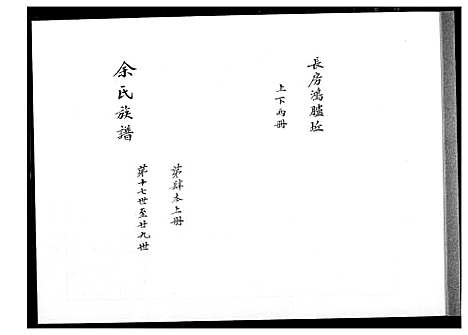 長房鴻臚坵
上下兩冊
余氏族譜
第肆本上冊
第十七世至廿九世